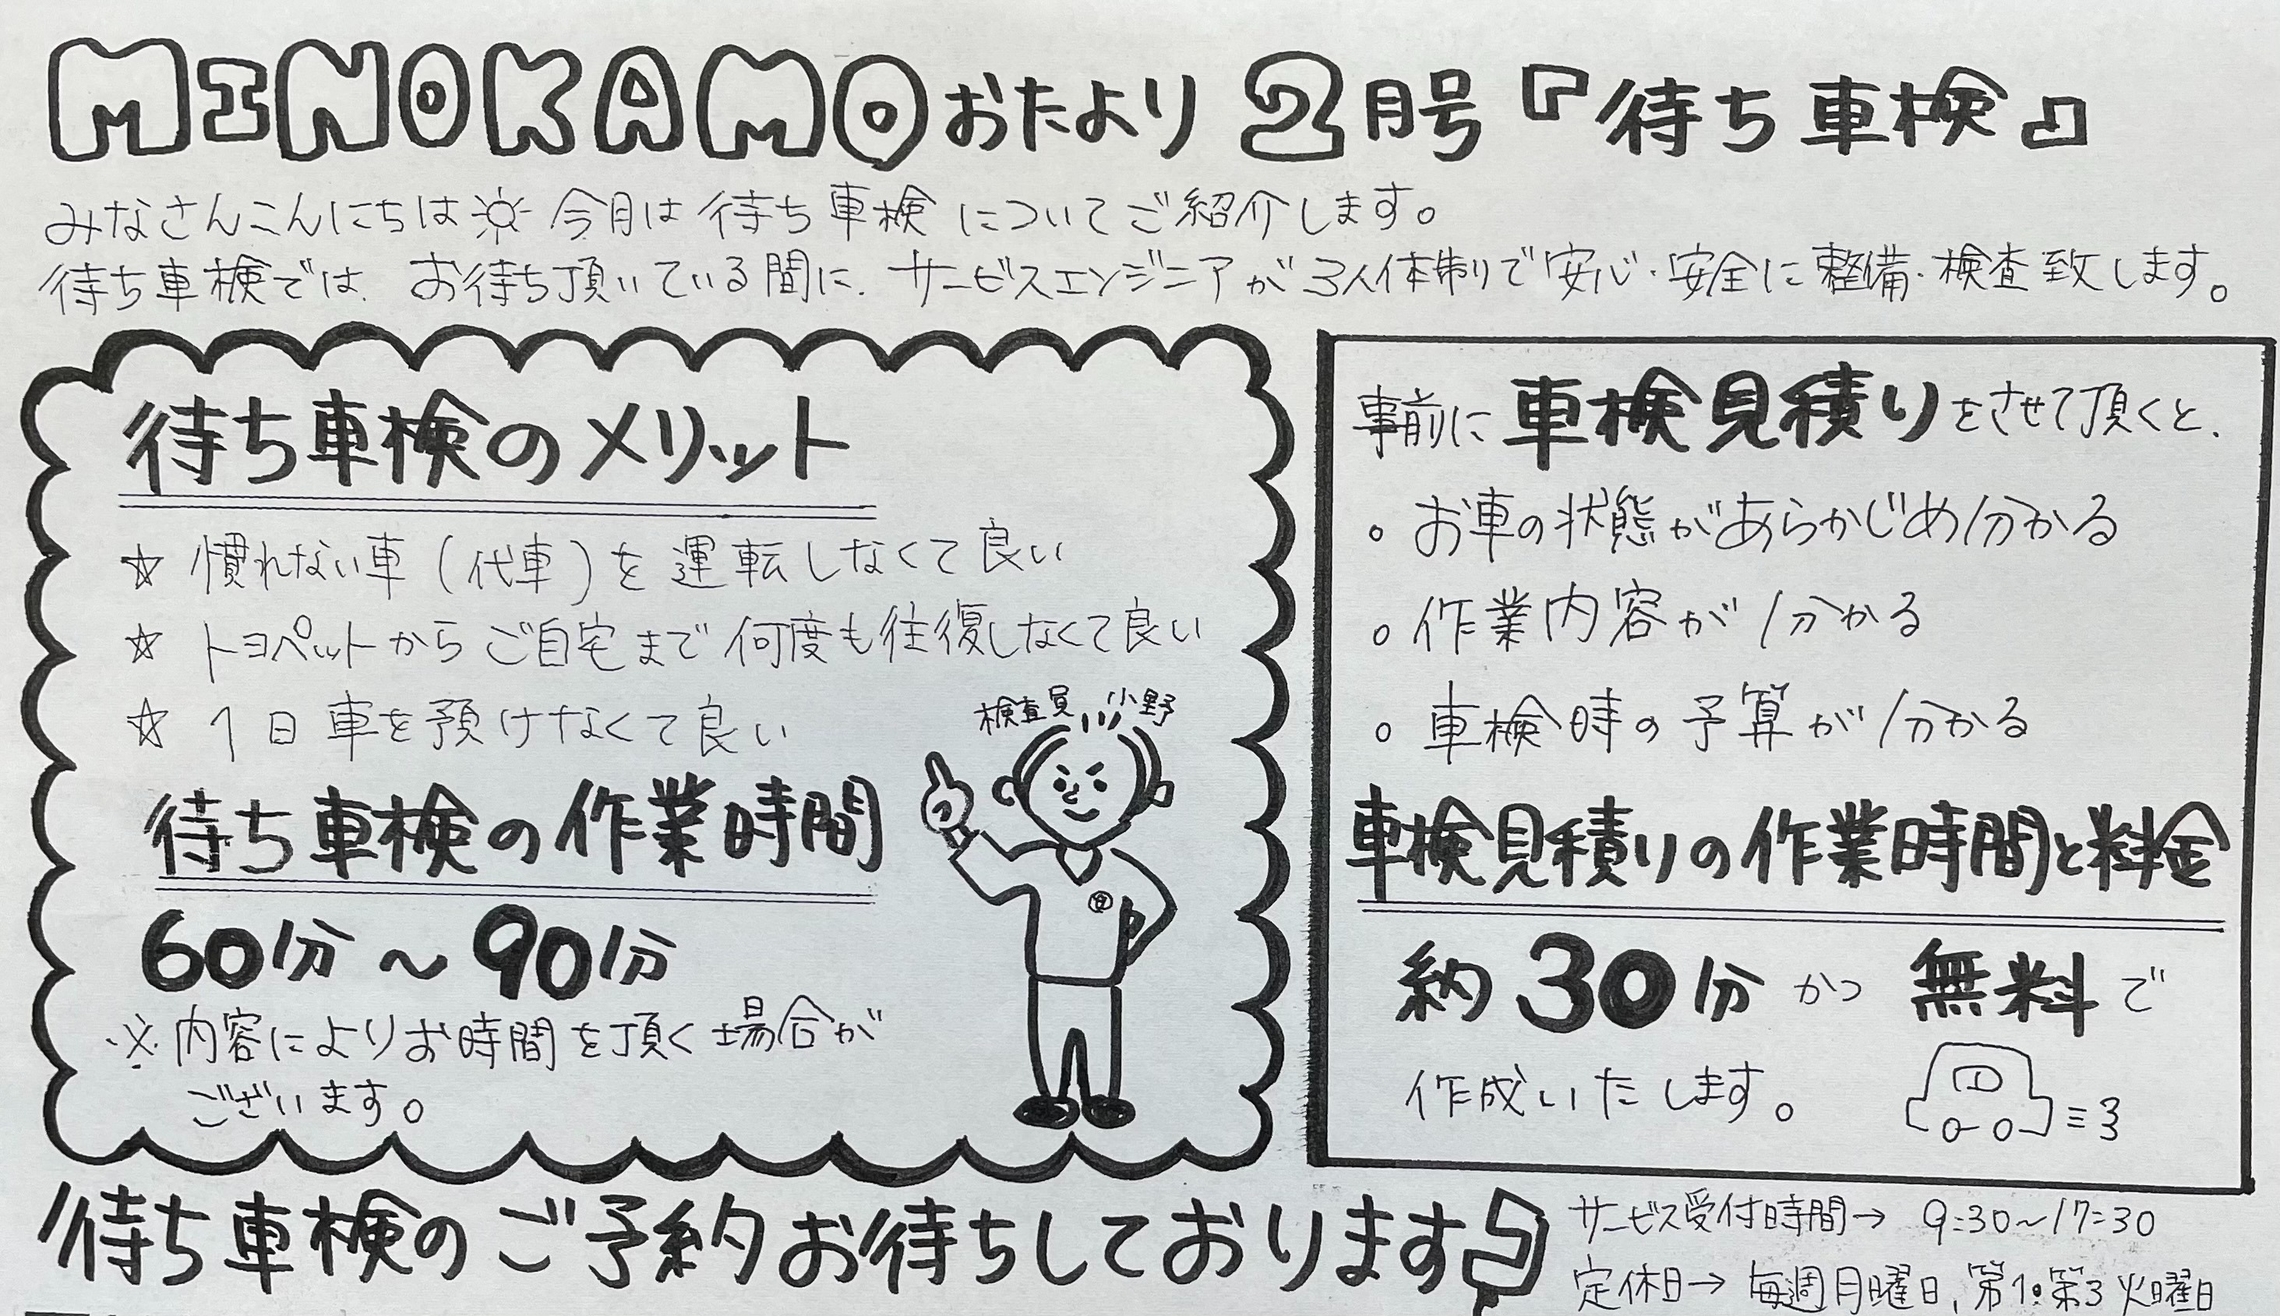 MINOKAMOおたより 2月号『待ち車検』
みなさんこんにちは☼ 今月は 待ち車検 についてご紹介します。
待ち車検では、お待ち頂いている間に、サービスエンジニアが3人体制で安心・安全に整備・検査致します。
待ち車検のメリット
☆ 慣れない車(代車)を運転しなくて良い
☆ トヨペットからご自宅まで何度も往復しなくて良い
☆ 1日車を預けなくて良い
検査員 小野
待ち車検の作業時間
60分～90分
※内容によりお時間を頂く場合が
ございます。
事前に車検見積りをさせて頂くと、
・お車の状態があらかじめ分かる
・作業内容が分かる
・車検時の予算が分かる
車検見積りの作業時間と料金
約30分かつ無料で
作成いたします。
待ち車検のご予約お待ちしております
サービス受付時間→ 9:30～17:30
定休日→ 毎週月曜日、第1・第3火曜日